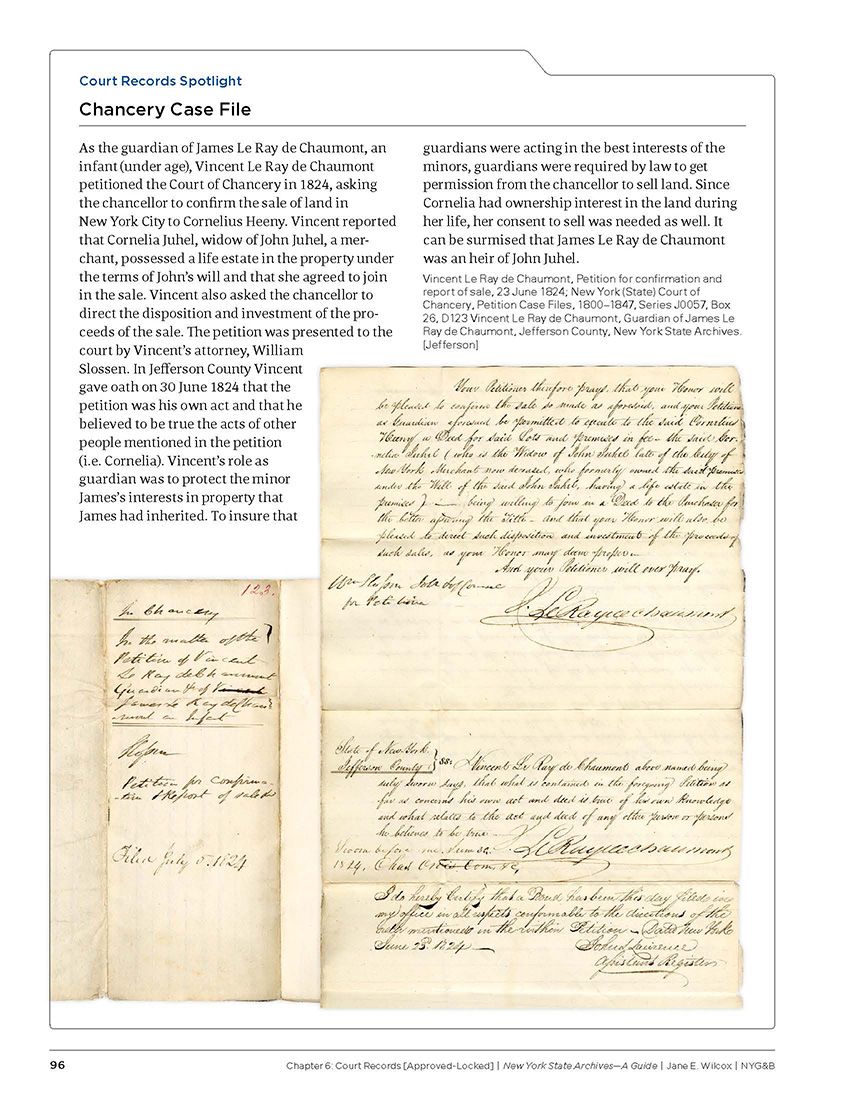 Court Records Spotlight
Chancery Case File
As the guardian of James Le Ray de Chaumont, an
infant (under age), Vincent Le Ray de Chaumont
petitioned the Court of Chancery in 1824, asking
the chancellor to confirm the sale of land in
New York City to Cornelius Heeny. Vincent reported
that Cornelia Juhel, widow of John Juhel, a mer-
chant, possessed a life estate in the property under
the terms of John's will and that she agreed to join
in the sale. Vincent also asked the chancellor to
direct the disposition and investment of the pro-
ceeds of the sale. The petition was presented to the
court by Vincent's attorney, William
Slossen. In Jefferson County Vincent
gave oath on 30 June 1824 that the
petition was his own act and that he
believed to be true the acts of other
people mentioned in the petition
(i.e. Cornelia). Vincent's role as
guardian was to protect the minor
James's interests in property that
James had inherited. To insure that
guardians were acting in the best interests of the
minors, guardians were required by law to get
permission from the chancellor to sell land. Since
Cornelia had ownership interest in the land during
her life, her consent to sell was needed as well. It
can be surmised that James Le Ray de Chaumont
was an heir of John Juhel.
Vincent Le Ray de Chaumont, Petition for confirmation and
report of sale, 23 June 1824; New York (State) Court of
Chancery, Petition Case Files, 1800–1847, Series J0057, Box
26, D123 Vincent Le Ray de Chaumont, Guardian of James Le
Ray de Chaumont, Jefferson County, New York State Archives.
[Jefferson]
Your Petitioner therefore prays, that your Honor will
be pleased to confirm the sale so made as aforesaid, and your Petitioner
as Guardian aforesaid be permitted to execute to the said Cornelius
Heeny a Deed for said Lots and premises in fee – the said Cor-
nelia Juhel (who is the Widow of John Juhel late of the City of
New York Merchant now deceased, who formerly owned the said premises
under the Will of the said John Juhel, having a life estate in the
premises) — being willing to join in a Deed to the Purchaser for
the better assuring the Title – and that your Honor will also be
pleased to direct such disposition and investment of the proceeds of
such sales, as your Honor may deem proper –
And your Petitioner will ever pray.
Wm Slosson
for Petitioner
V. LeRaydeChaumont
123.
In Chancery
In the matter of the
Petition of Vincent
Le Ray deChaumont
Guardian &c of Vincent
James Le Ray deChau-
mont an Infant
Slosson
Petition for Confirma-
-tion & Report of sales
Filed July 5. 1824
State of New York
Jefferson County } ss: Vincent Le Ray de Chaumont above named being
duly sworn says, that what is contained in the foregoing Petition as
far as concerns his own act and deed is true of his own knowledge
and what relates to the act and deed of any other person or persons
he believes to be true –
Sworn before me, June 30. V. LeRaydeChaumont
1824,
I do hereby Certify that a Bond has been this day filed in
my office in all respects conformable to the directions of the
order mentioned in the within Petition – Dated New York
June 23d. 1824 —
John L Lawrence
Assistant Register
96
Chapter 6: Court Records [Approved-Locked] | New York State Archives—A Guide | Jane E. Wilcox | NYG&B